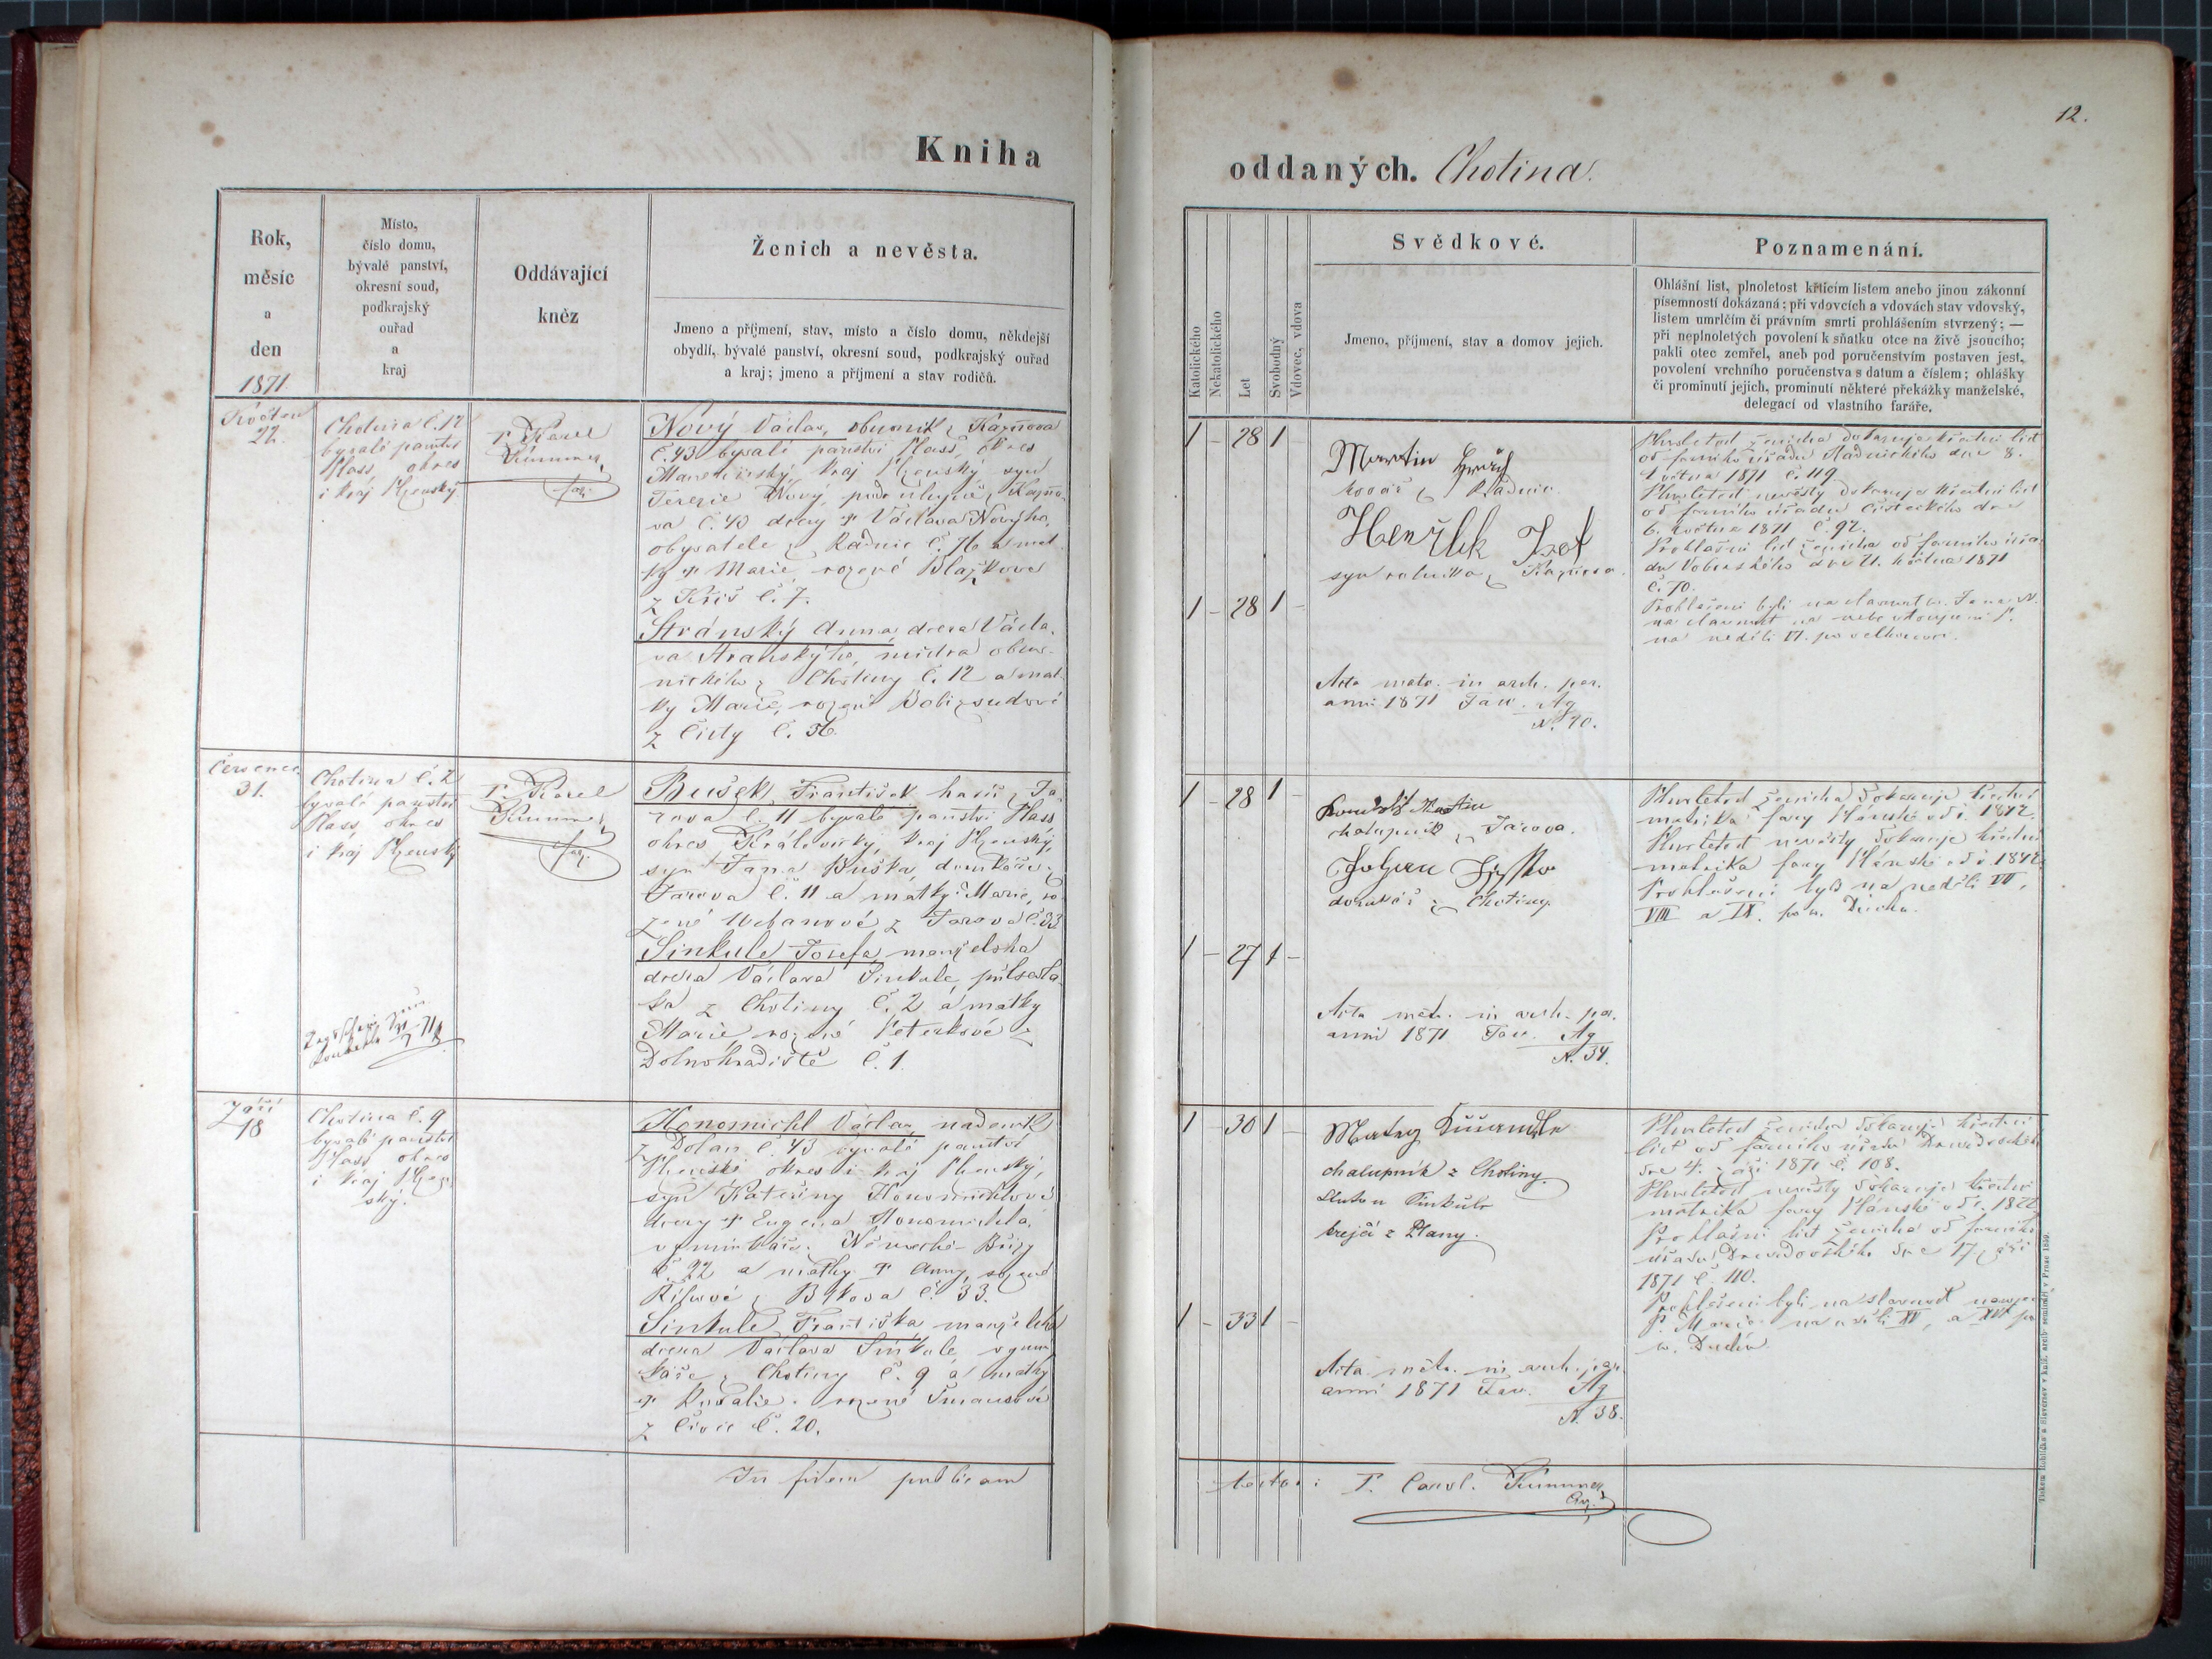 12.
Kniha
oddaných. Chotina.
Rok,
měsíc
a
den
1871
Místo,
číslo domu,
bývalé panství,
okresní soud,
podkrajský
ouřad
a
kraj
Oddávající
kněz
Ženich a nevěsta.
Jmeno a příjmení, stav, místo a číslo domu, někdejší
obydlí, bývalé panství, okresní soud, podkrajský ouřad
a kraj; jmeno a příjmení a stav rodičů.
Katolického
Nekatolického
Let
Svobodný
Vdovec, vdova
Svědkové.
Jmeno, příjmení, stav a domov jejich.
Poznamenání.
Ohlášní list, plnoletost křticím listem anebo jinou zákonní
písemností dokázaná; při vdovcích a vdovách stav vdovský,
listem umrlčím či právním smrti prohlášením stvrzený; —
při neplnoletých povolení k sňatku otce na živě jsoucího;
pakli otec zemřel, aneb pod poručenstvím postaven jest,
povolení vrchního poručenstva s datum a číslem; ohlášky
či prominutí jejich, prominutí některé překážky manželské,
delegací od vlastního faráře.
Květen
22.
Chotina č. 12
bývalé panství
Plass, okres
i kraj Plzenský
P. Karel
Kummer,
far.
Nový Václav, obuvník z Kaznova
č. 43 bývalé panství Plass, okres
Manetínský, kraj Plzenský syn
Terezie Nový, z Kazňo-
va č. 43 dcery † Václava Novýho,
obyvatele z Radnic č. 76 a mat-
ky † Marie, rozené Blažkove
z Kříš č. 7.
Stránský Anna dcera Václa-
va Stranskýho, mistra obuv-
nického z Chotiny č. 12 a mat-
ky Marie, rozené
z Čisty č. 36.
1 - 28 1 -
1 - 28 1 -
Martin
kovář z Radnic
Henžlik Josef
syn rolníka z Kaznova.
Acta matr. in arch. par.
anni 1871 Fasc. Ag
N. 40.
Plnoletost ženicha dokazuje křestní list
od farního úřadu Radnického dne 8.
května 1871 č. 119.
Plnoletost nevěsty dokazuje křestní list
od farního úřadu Čisteckého dne
6. května 1871 č. 92.
Prohlašní list ženicha od farního úřa-
du dne 21. května 1871
č. 70.
Prohlášeni byli na slavnost sv. Jana N.
na slavnost na nebe vstoupení P.
na neděli VI. po velkonoci.
Července
31.
Chotina č. 2
bývalé panství
Plass, okres
i kraj Plzenský
P. Karel
Kummer,
far.
Bušek František havíř z Ja-
rova č. 11 bývalé panství Plass
okres Královický, kraj Plzenský,
syn Jana Buška, domkáře z
Jarova č. 11 a matky Marie, ro-
zené Urbanové z Jarova č. 33
Sinkule Josefa manželská
dcera Václava Sinkule, půlsedlá-
ka z Chotiny č. 2 a matky
Marie, rozené Peterkové z
Dolnohradiště č. 1.
1 - 28 1 -
1 - 27 1 -
Martin
chalupník z Jarova.
domkář z Chotiny.
Acta matr. in arch. par.
anni 1871 Fasc. Ag
N. 34.
Plnoletost ženicha dokazuje křestní
matrika fary Plánské od r. 1842.
Plnoletost nevěsty dokazuje křestní
matrika fary Plánské od r. 1842.
Prohlášeni byli na neděli VII,
VIII a IX. po sv. Duchu.
Září
18
Chotina č. 9
bývalé panství
Plass okres
i kraj Plzen-
ský.
Honomichl Václav, nádeník
z Dolan č. 43 bývalé panství
Plzeňské okres i kraj Plzenský,
syn Kateřiny Honomichlové
dcery † Eugena Honomichla,
vyminkáře z Německé-Břízy
č. 22 a matky † Anny, rozené
z Bykova č. 33.
Sinkule Františka manželská
dcera Václava Sinkule, výmin-
káře z Chotiny č. 9 a matky
† Rosalie, rozené Šmausové
z Čivic č. 20.
1 - 30 1 -
1 - 33 1 -
Matěj
chalupník z Chotiny.
Anton Sinkule
krejčí z Plany.
Acta matr. in arch. par.
anni 1871 Fasc. Ag
N. 38.
Plnoletost ženicha dokazuje křestní
list od farního úřadu
dne 4. září 1871 č. 108.
Plnoletost nevěsty dokazuje křestní
matrika fary Plánské od r. 1822
Prohlašní list ženicha od farního
úřadu dne 17. září
1871 č. 110.
Prohlášeni byli na slavnost narozen.
P. Marie na neděli XV, a XVI po
sv. Duchu.
In fidem publicam
testor: P. Carol. Kummer
Tiskem Rohlíčka a Sieversa v kníž. arcib. semináři v Praze 1859.